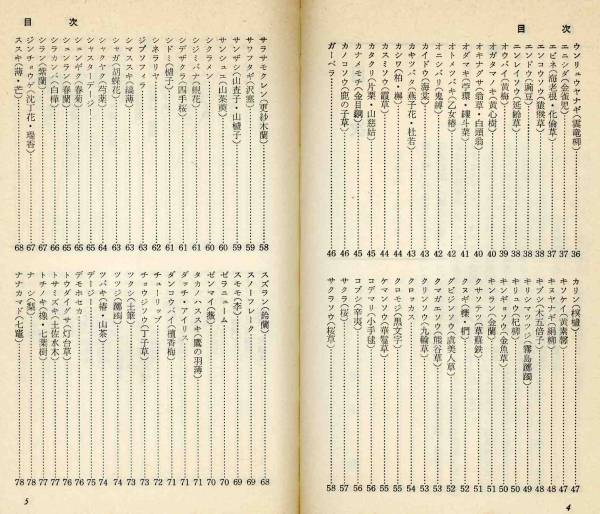 目次
ウンリュウヤナギ（雲竜柳）36
エニシダ（金雀児）37
エビネ（海老根・化倫草）37
エンコウソウ（猿猴草）38
エンドウ（豌豆）38
エンレイソウ（延齢草）38
オウバイ（黄梅）39
オガタマノキ（黄心樹）39
オキナグサ（翁草・白頭翁）40
オダマキ（苧環・縷斗菜）40
オトメツバキ（乙女椿）41
オニシバリ（鬼縛）42
カイドウ（海棠）42
カキツバタ（燕子花・杜若）43
カシワ（柏・槲）44
カスミソウ（霞草）44
カタクリ（片栗・山慈姑）45
カナメモチ 45
カノコソウ（鹿の子草）46
ガーベラ 46
カリン（榠樝）47
キソケイ（黄素馨）47
キヌヤナギ（絹柳）48
キブシ（木五倍子）48
キリシマツツジ（霧島躑躅）49
キリュウ（杞柳）50
キンギョソウ（金魚草）50
キンラン（金蘭）51
クサソテツ（草蘇鉄）51
クヌギ（櫟・椚）52
グビジンソウ（虞美人草）52
クマガエソウ（熊谷草）53
クリンソウ（九輪草）53
クロッカス 54
クロモジ（黒文字）55
ケマンソウ（華鬘草）56
コデマリ（小手毬）56
コブシ（辛夷）57
サクラ（桜）57
サクラソウ（桜草）58
4
目次
サラサモクレン（更紗木蘭）58
サワフタギ（沢塞）59
サンザシ（山査子・山樝子）59
サンシュユ（山茶萸）59
シクラメン 60
シジミバナ（蜆花）61
シデザクラ（四手桜）61
シドミ（樝子）61
ジプソフィラ 61
シネラリヤ 62
シマススキ（縞薄）63
シャガ（胡蝶花）63
シャクヤク（芍薬）64
シャスターデージー 65
シュンギク（春菊）65
シュンラン（春蘭）65
シラカンバ（白樺）66
シラン（紫蘭）67
ジンチョウゲ（沈丁花・瑞香）67
ススキ（薄・芒）68
スズラン（鈴蘭）68
スノーフレーク 69
スモモ（李）69
ゼラニューム 70
ゼンマイ（薇）70
タカノハススキ（鷹の羽薄）71
ダッチ・アイリス 71
ダンコウバイ（檀香梅）71
チューリップ 72
チョウジソウ（丁子草）73
ツクシ（土筆）73
ツツジ（躑躅）74
ツバキ（椿・山茶）74
デージー 75
デモホセカ 76
トウダイグサ（灯台草）76
トサミズキ（土佐水木）77
トチノキ（橡・七葉樹）77
ナシ（梨）78
ナナカマド（七竈）78
5